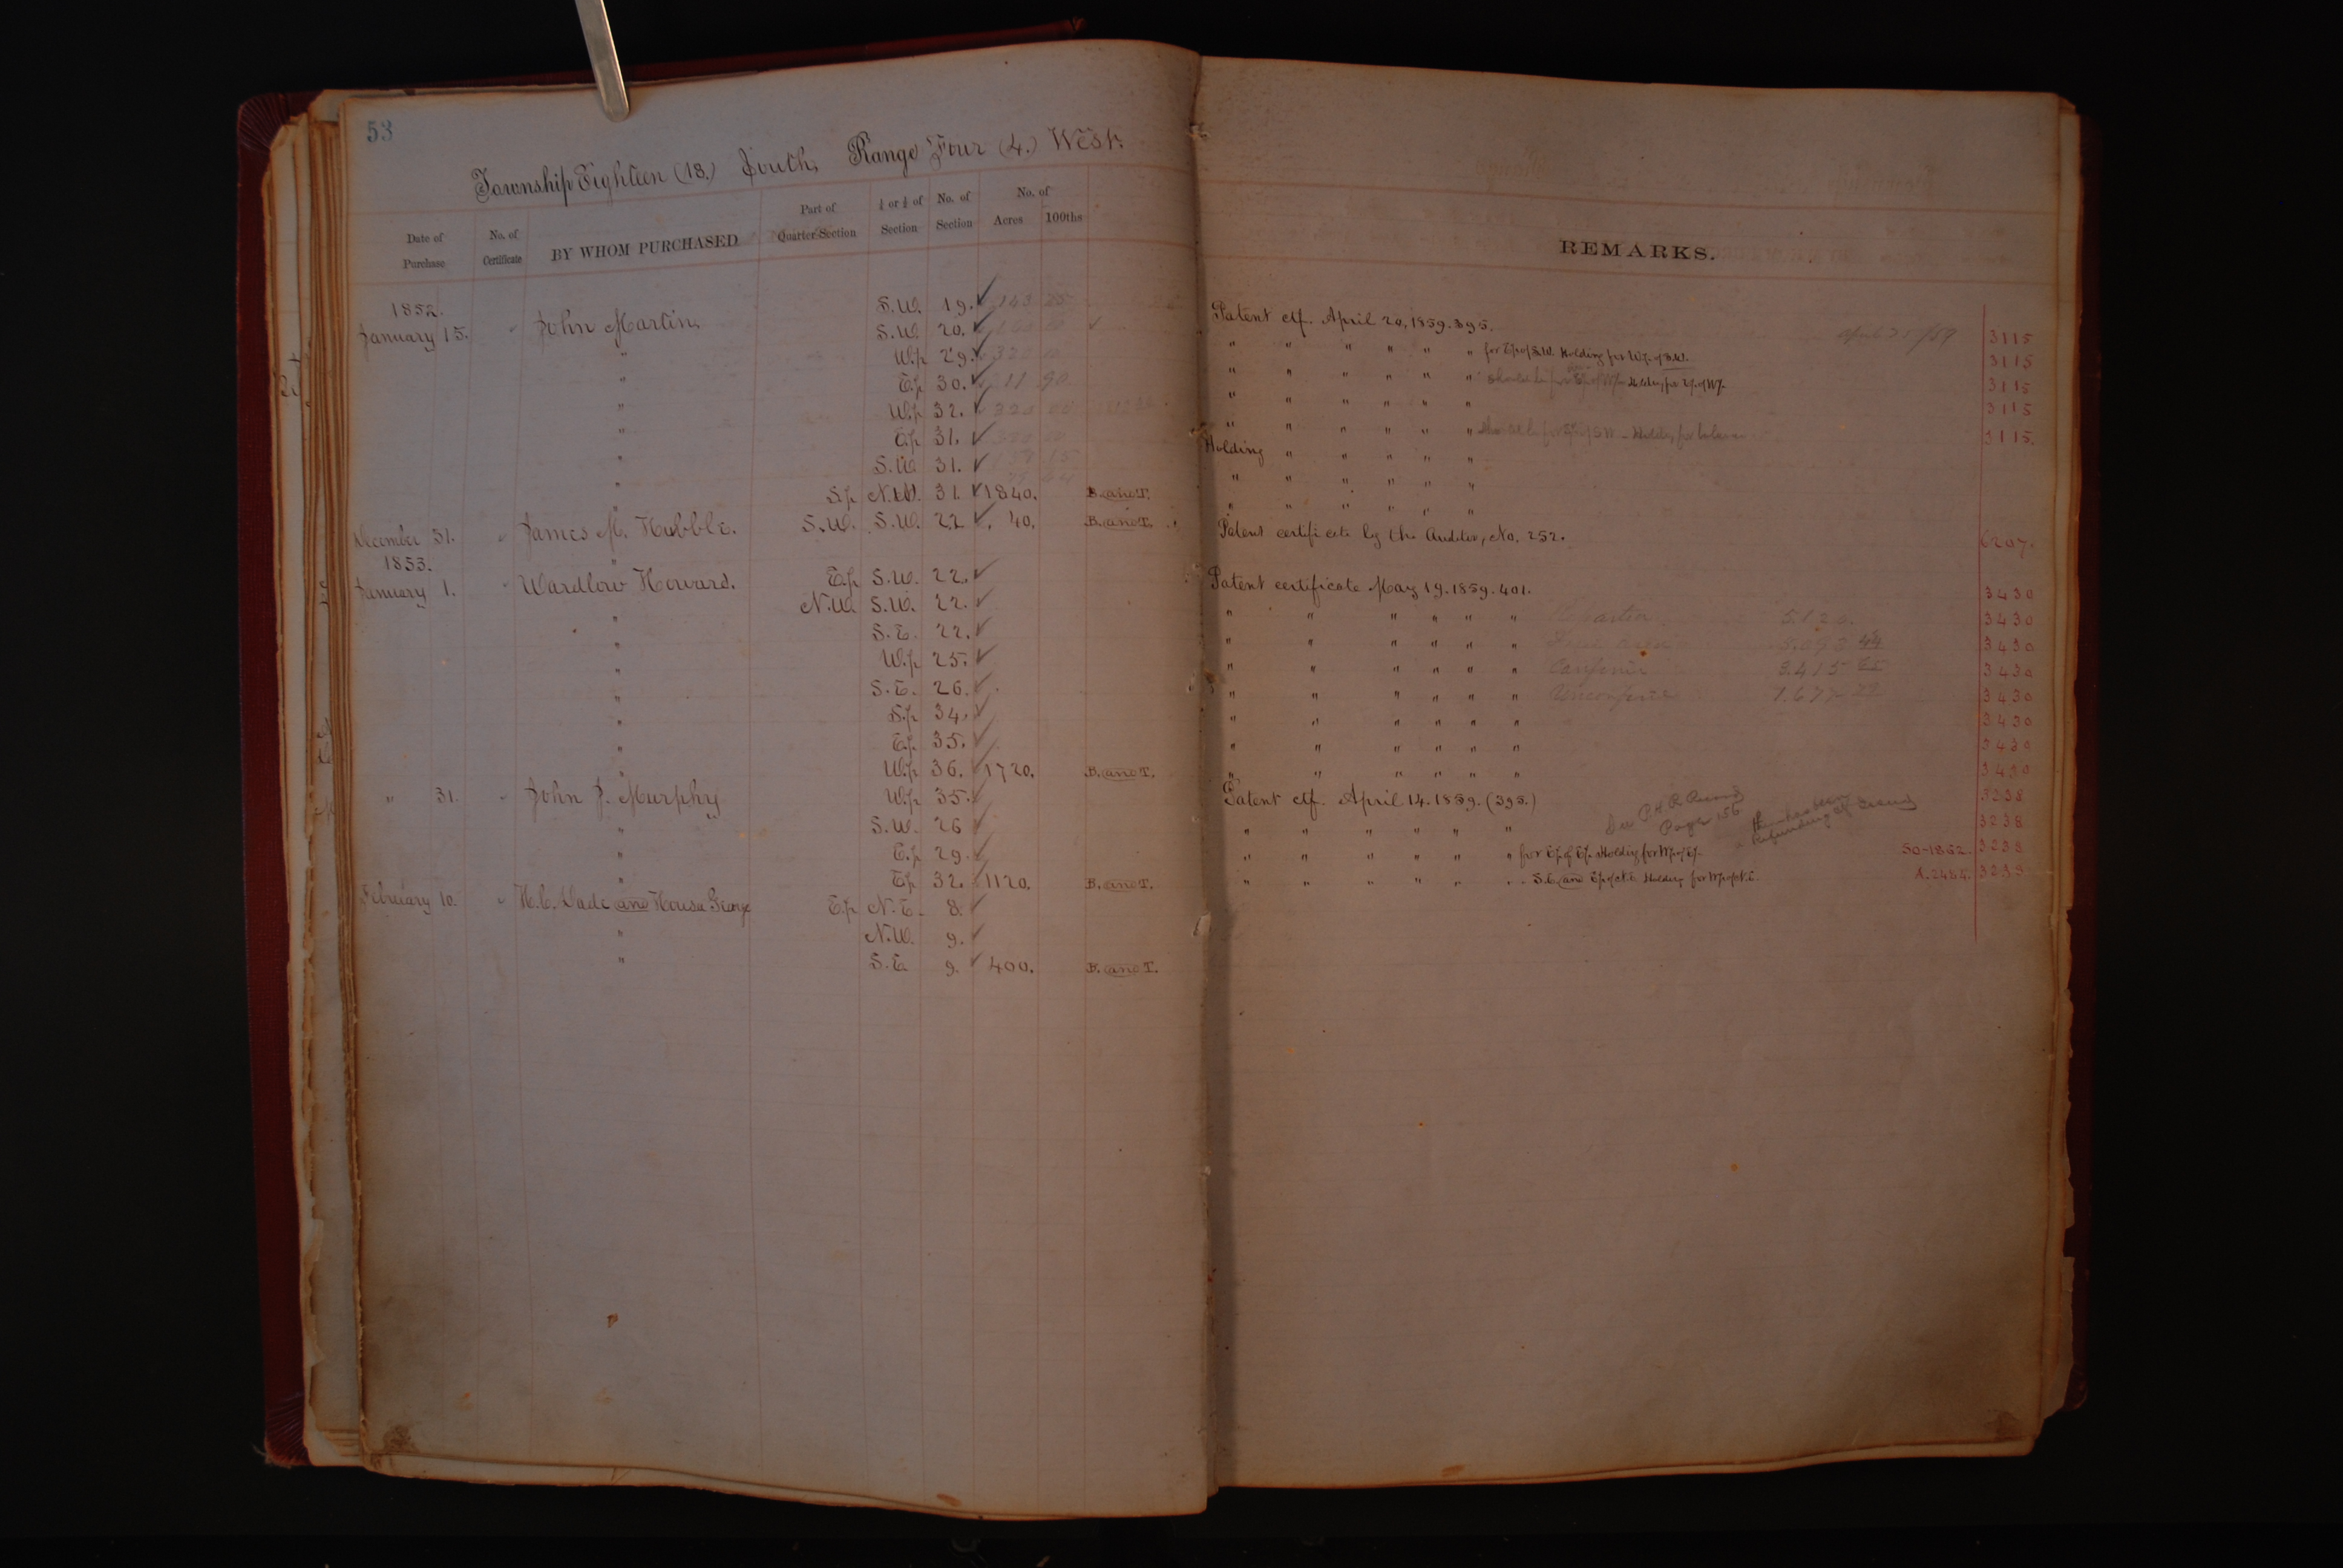 53
Township Eighteen (18.) South, Range Four (4.) West.
Date of Purchase No. of Certificate BY WHOM PURCHASED Part of Quarter Section ¼ or ½ of Section No. of Section No. of Acres 100ths
REMARKS.
1852. S.W. 19. 143
January 15. " John Martin, S.W. 20. Patent ctf. April 20, 1859. 395. 3115
" W.½ 29. 320 " " " " " " for E½ of S.W. Holding for W½ of S.W. 3115
" E.½ 30. 11 90 " " " " " " 3115
" W.½ 32. 320 " " " " " " 3115
" E.½ 31. " " " " " " 3115.
" S.W. 31. Holding " " " " "
" S.½ N.W. 31. 1840. B. and T. " " " " " "
December 31. " James M. Hubble. S.W. S.W. 22 40. B. and T. Patent certificate by the Auditor, No. 252. 6207.
1853.
January 1. " Wardlow Howard. E.½ S.W. 22. Patent certificate May 19. 1859. 401. 3430
" N.W. S.W. 22. " " " " " " 3430
" S.E. 22. " " " " " " 3430
" W.½ 25. " " " " " " 3430
" S.E. 26. " " " " " " 3430
" S.½ 34. " " " " " " 3430
" E.½ 35. " " " " " " 3430
" W.½ 36. 1720. B. and T. " " " " " " 3430
" 31. " John J. Murphy W.½ 35. Patent ctf. April 14. 1859. (395.) 3238
" S.W. 26 " " " " " " Page 156 3238
" E.½ 29. " " " " " " for E½ of E½. Holding for W½ of E½. 50-1862. 3238
" E.½ 32. 1120. B. and T. " " " " " " S.E. and E½ of N.E. Holding for W½ of N.E. A.2484. 3238
February 10. " H.C. Dade and Housa George E.½ N.E. 8.
" N.W. 9.
" S.E. 9. 400. B. and T.